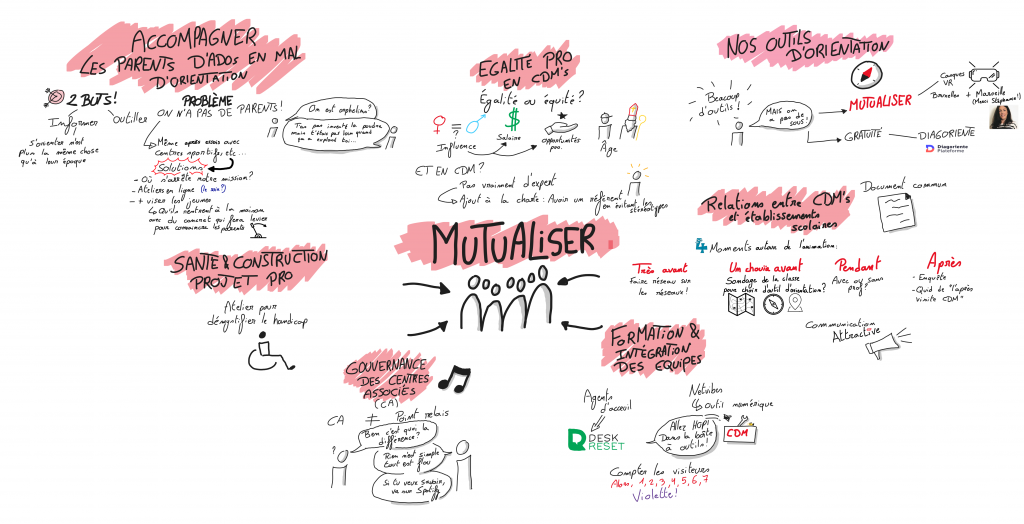 ACCOMPAGNER
LES PARENTS D'ADOS EN MAL
D'ORIENTATION
2 BUTS!
Informer
outiller
s'orienter n'est
plus la même chose
qu'à leur époque
PROBLÈME
ON N'A PAS DE PARENTS!
On est orphelins?
T'as pas inventé la poudre
mais t'étais pas loin quand
ça a explosé toi...
Même après essais avec
Centres sportifs, etc...
Solutions
- Où s'arrête notre mission?
- Ateliers en ligne (le soir?)
- + viser les jeunes
Qu'ils rentrent à la maison
avec du concret qui fera levier
pour convaincre les parents
EGALITÉ PRO
EN CDM's
Égalité ou équité?
= ?
$
Influence
Salaire
opportunités
pro.
Age
ET EN CDM?
Pas vraiment d'expert
Ajout à la charte: Avoir un référent
en évitant les
stéréotypes
NOS OUTILS
D'ORIENTATION
Beaucoup
d'outils!
MAIS on
a peu de
sous!
MUTUALISER
Casques
VR
Bruxelles + Marseille
(Merci Stéphanie!)
GRATUITÉ
DIAGORIENTE
Diagoriente
Plateforme
Relations entre CDM's
et établissements
scolaires
Document commun
4 Moments autour de l'animation:
Très avant
Faire réseau sur
les réseaux!
Un chouia avant
Sondage de la classe
pour choix d'outil d'orientation?
Pendant
Avec ou sans
prof?
Après
- Enquête
- Quid de "l'après
visite CDM"
Communication
Attractive
MUTUALISER
SANTÉ & CONSTRUCTION
PROJET PRO
Atelier pour
démystifier le handicap
GOUVERNANCE
DES CENTRES
ASSOCIÉS
(CA)
CA ≠ Point relais
Ben c'est quoi la
différence?
?
Rien n'est simple
tout est flou
Si tu veux Souchon,
va sur Spotify
FORMATION &
INTÉGRATION
DES EQUIPES
Agents
d'accueil
DESK
RESET
Netvibes
outil numérique
Allez HOP!
Dans la boîte
à outils!
CDM
Compter les visiteurs
Abso, 1, 2, 3, 4, 5, 6, 7
Violette!